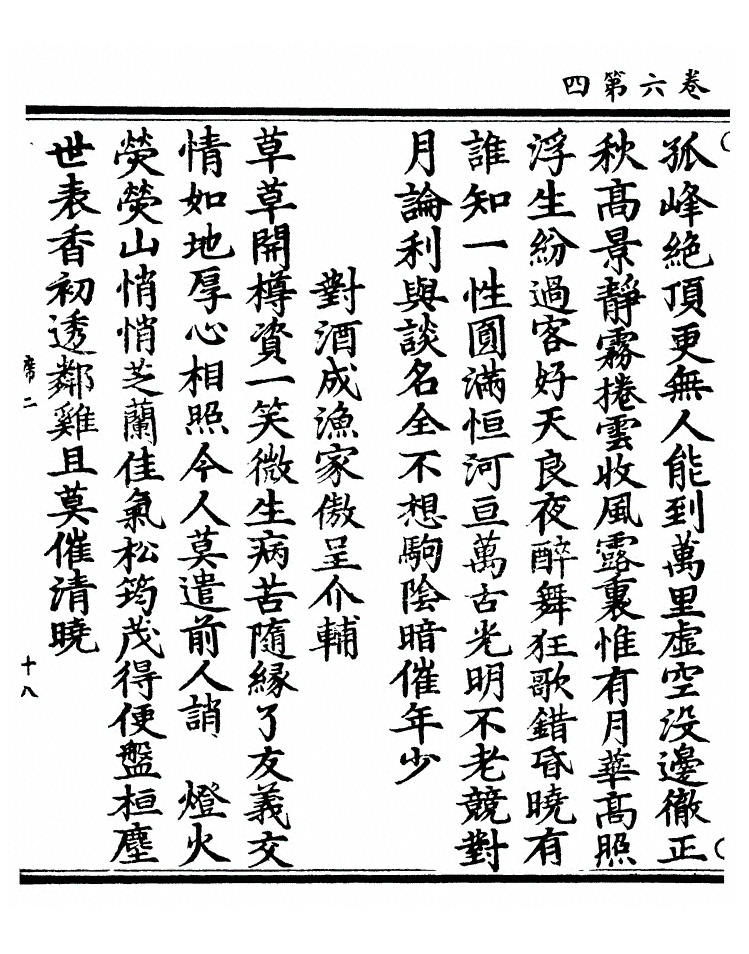 卷六第四
孤峰絶頂更無人能到萬里虚空没邊徹正
秋髙景靜霧捲雲收風露裏惟有月華髙照
浮生紛過客好天良夜醉舞狂歌錯昏曉有
誰知一性圓滿恒河亘萬古光明不老競對
月論利與談名全不想駒陰暗催年少
對酒成漁家傲呈介輔
草草開樽資一笑微生病苦隨縁了友義交
情如地厚心相照今人莫遣前人誚 燈火
熒熒山悄悄芝蘭佳氣松筠茂得便盤桓塵
世表香初透鄰雞且莫催清曉
席二
十八